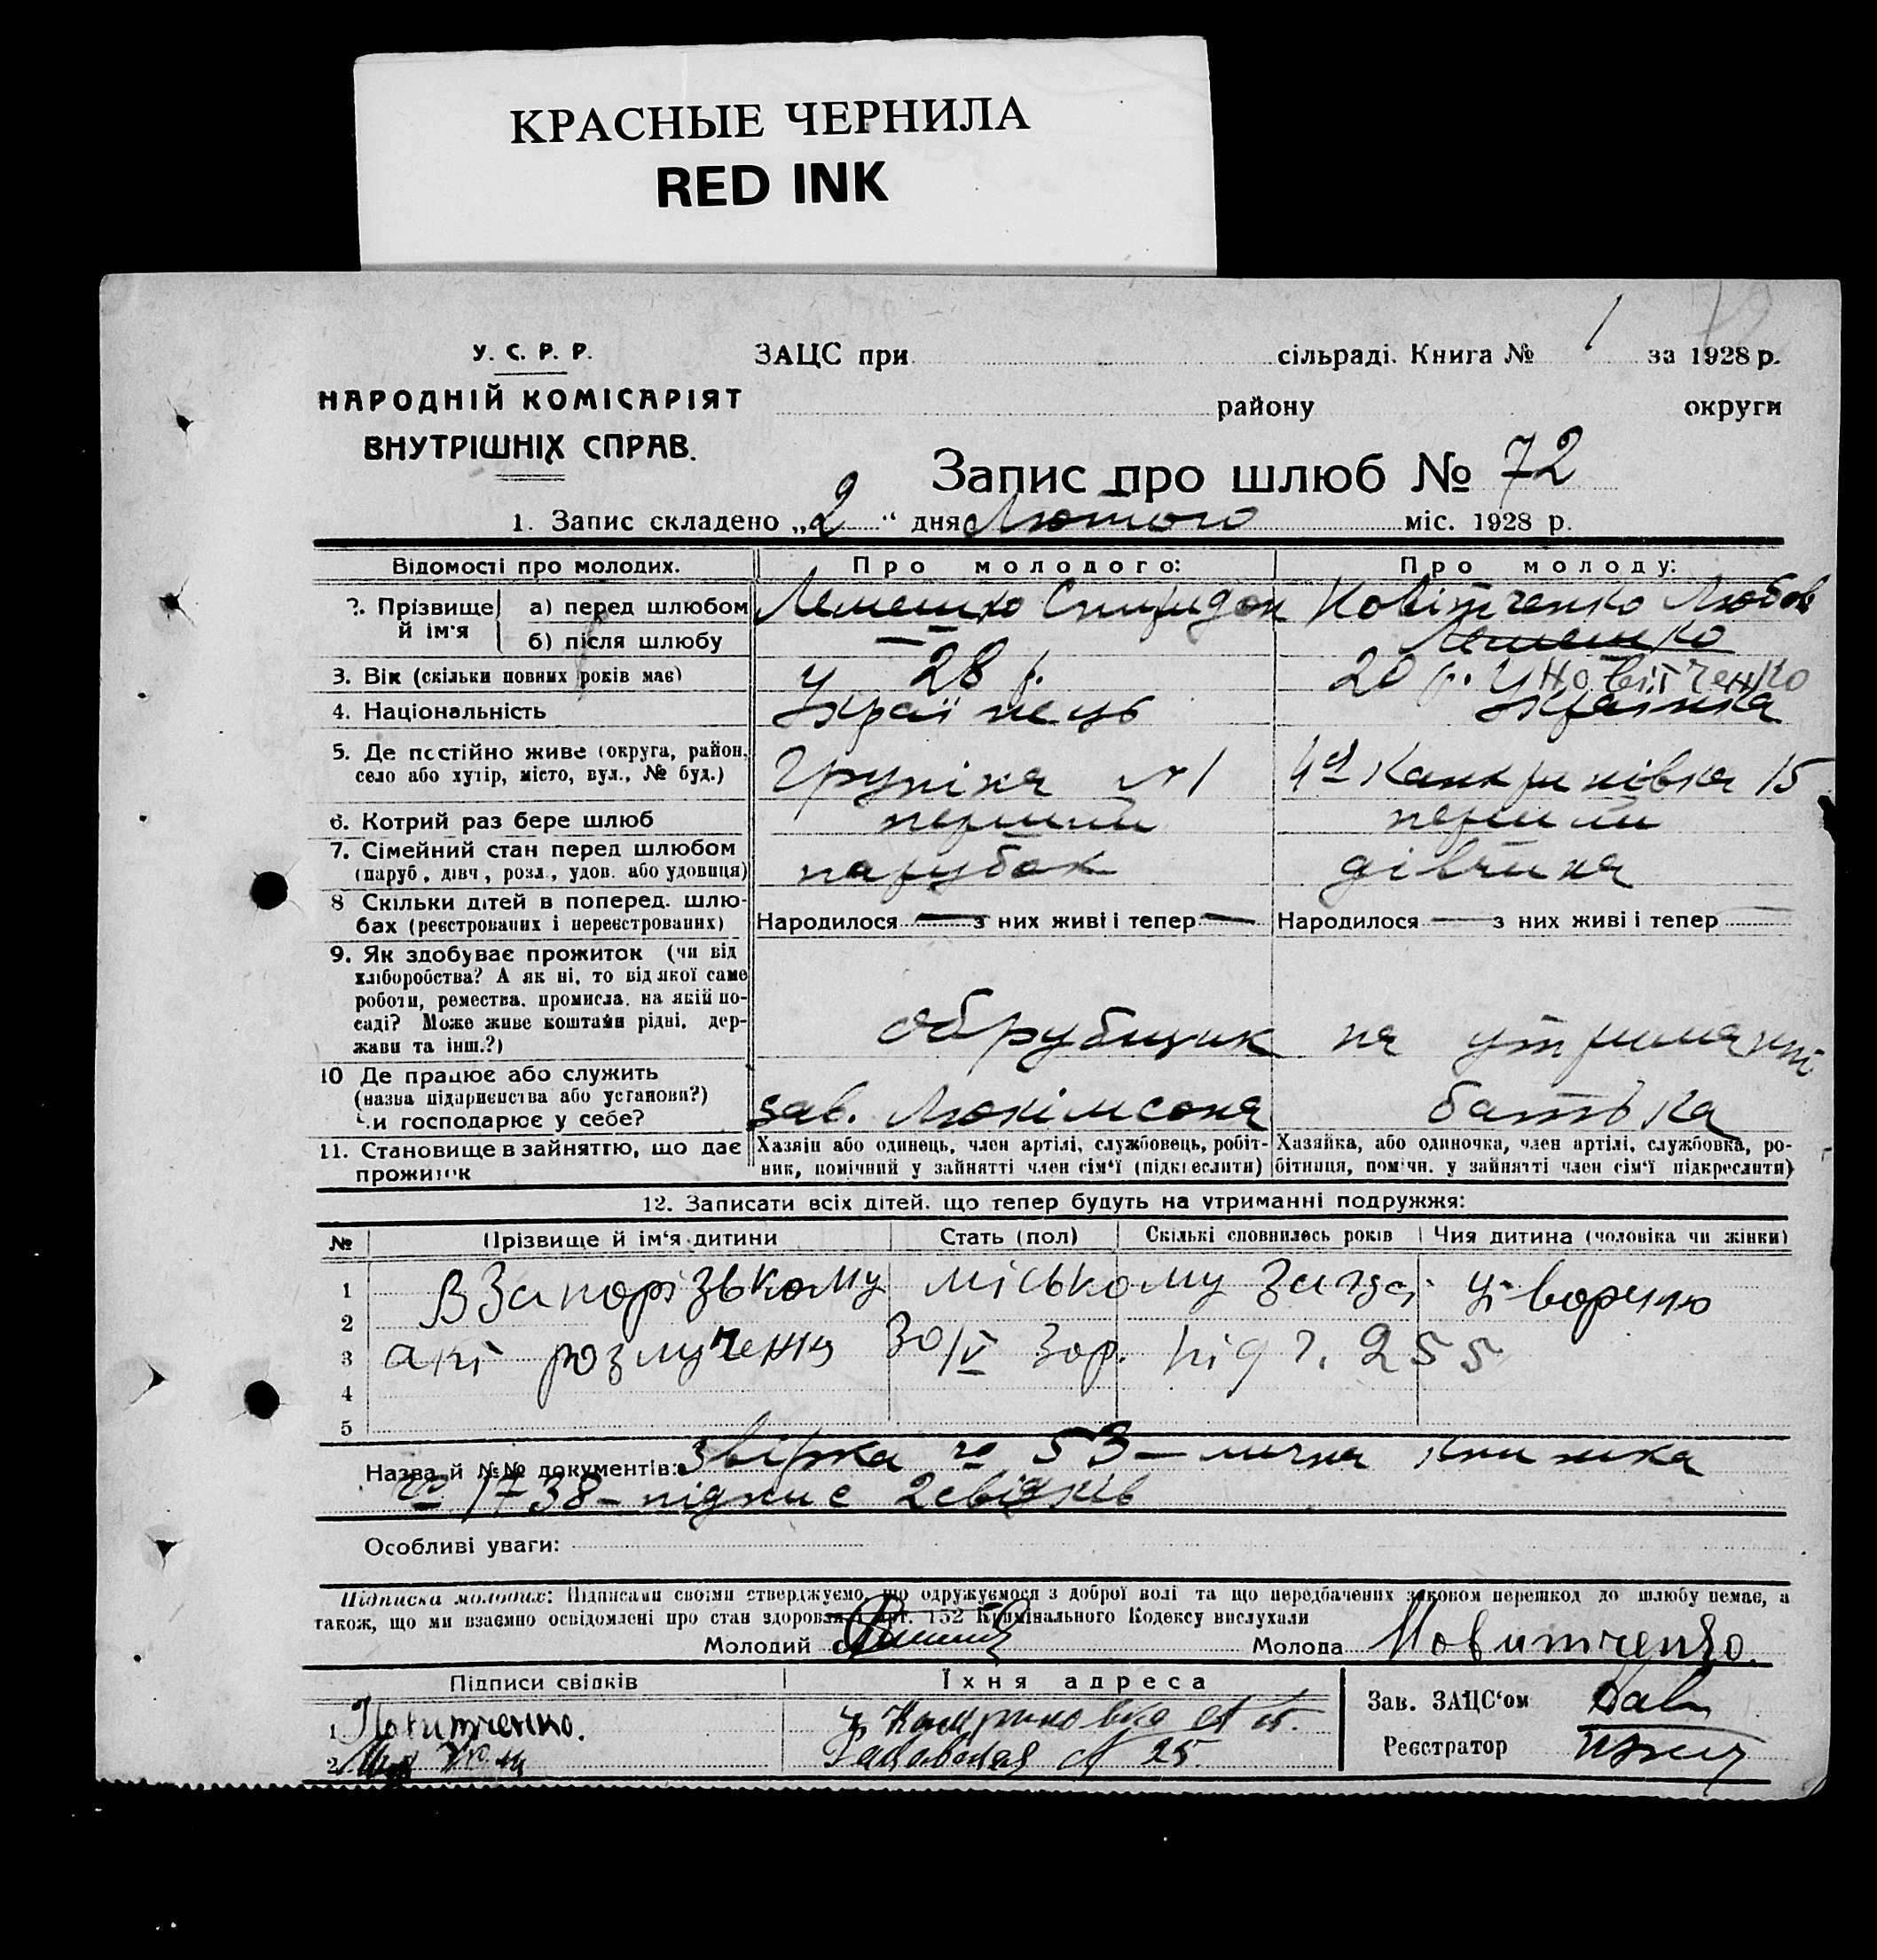 КРАСНЫЕ ЧЕРНИЛА
RED INK
У. С. Р. Р.
НАРОДНІЙ КОМІСАРІЯТ
ВНУТРІШНІХ СПРАВ.
ЗАЦС при сільраді. Книга № 1 за 1928 р.
району округи
Запис про шлюб № 72
1. Запис складено „2“ дня Лютого міс. 1928 р.
Відомості про молодих. Про молодого: Про молоду:
2. Прізвище й ім'я а) перед шлюбом Лемешко Спиридон Новітченко Любов
б) після шлюбу — Лемешко
3. Вік (скільки повних років має) 28 р. 20 р. Новітченко
4. Національність Українець Українка
5. Де постійно живе (округа, район, село або хутір, місто, вул., № буд.) №1 Канкринівка 15
6. Котрий раз бере шлюб перший перший
7. Сімейний стан перед шлюбом (паруб., дівч., розл., удов. або удовиця) парубок дівчина
8 Скільки дітей в поперед. шлюбах (реєстрованих і нереєстрованих) Народилося — з них живі і тепер — Народилося — з них живі і тепер —
9. Як здобуває прожиток (чи від
хліборобства? А як ні, то від якої саме
роботи, ремества, промисла, на якій по-
саді? Може живе коштами рідні, дер-
жави та інш.?) обрубщик на утриманні
10 Де працює або служить
(назва підприємства або установи?)
Чи господарює у себе? зав. батька
11. Становище в зайняттю, що дає прожиток
Хазяїн або одинець, член артілі, службовець, робіт-
ник, помічний у зайнятті член сім'ї (підкреслити)
Хазяйка, або одиночка, член артілі, службовка, ро-
бітниця, помічн. у зайнятті член сім'ї підкреслити)
12. Записати всіх дітей, що тепер будуть на утриманні подружжя:
№ Прізвище й ім'я дитини Стать (пол) Скількі сповнилось років Чия дитина (чоловіка чи жінки)
1 В Запорізькому міському Загзі
2
3 акт розлучення 30/V 30р. під ч. 255
4
5
Назва й №№ документів: Звірка № 53 — лична книжка
№ 1738 — підпис 2 свідків
Особливі уваги:
Підписка молодих: Підписами своїми стверджуємо, що одружуємося з доброї волі та що передбачених законом перешкод до шлюбу немає, а
також, що ми взаємно освідомлені про стан здоровля і арт. 152 Кримінального Кодексу вислухали
Молодий Молода Новитченко.
Підписи свідків Їхня адреса
Зав. ЗАЦС'ом
1 Новитченко.
Реєстратор
2 25.